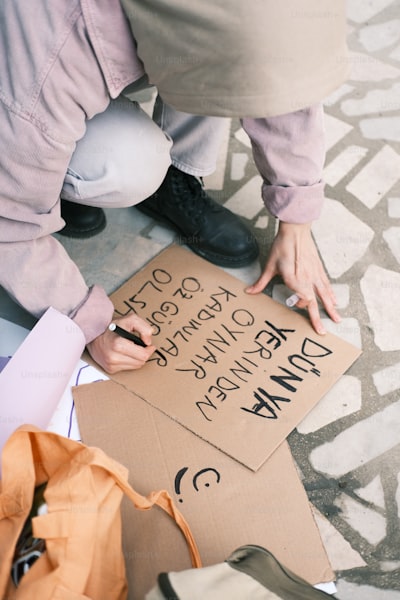 DÜNYA
YERİNDEN
OYNAR
KADINLAR
ÖZGÜR
OLSA
:)